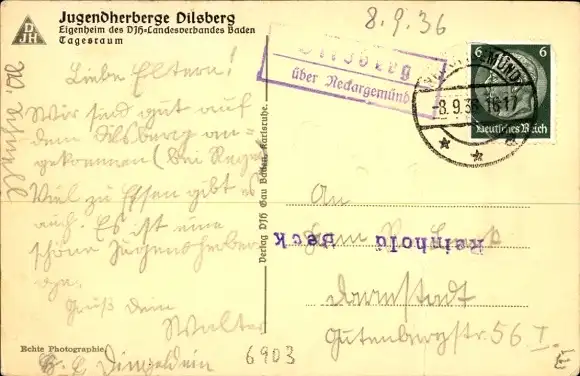 8.9.36
DJH
Jugendherberge Dilsberg
Eigenheim des DJH-Landesverbandes Baden
Tagesraum
Dilsberg
über Neckargemünd
6 6
Deutsches Reich
-8.9.36 16-17
Liebe Eltern!
Wir sind gut auf
dem Dilsberg an=
gekommen (bei Regen
Viel zu Essen gibt es
auch. Es ist eine
schöne Jugendherber
ge.
Gruß Dein
Walter
Verlag DJH Gau Baden, Karlsruhe.
An
Reinhold Beck
Darmstadt
Gutenbergstr. 56 I.
Echte Photographie
6903